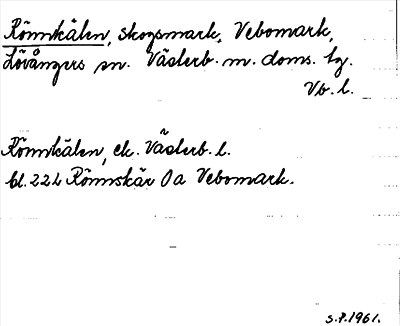 Rönnkälen, skogsmark, Vebomark,
Lövångers sn. Västerb. m. doms. lg.
Vb. l.
Rönnkälen, ek. Västerb. l.
bl. 22L Rönnskär Öa Vebomark.
S.P.1961.